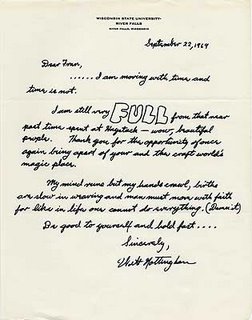 WISCONSIN STATE UNIVERSITY-
RIVER FALLS
RIVER FALLS, WISCONSIN
September 23, 1969
Dear Fran,
...... I am moving with time and
time is not.
I am still very FULL from that near
past time spent at Haystack — wow, beautiful
people. Thank you for the opportunity of once
again being apart of your and the craft world's
magic place.
My mind runs but my hands crawl, births
are slow in weaving and man must move with faith
for like in life one cannot do everything. (Damn it)
Do good to yourself and hold fast....
Sincerely,
Walt Nottingham